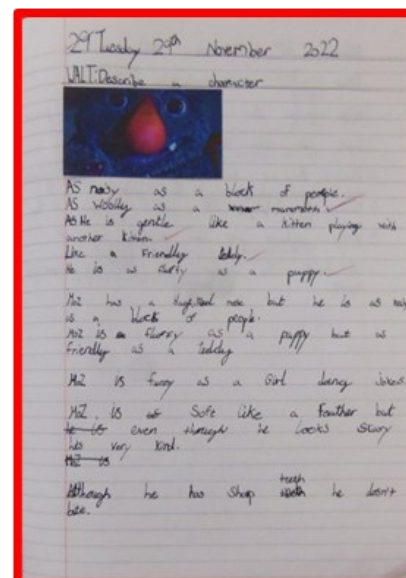 29Tuesday 29th November 2022
WALT:Describe a character
AS noisy as a block of people.
AS woolly as a mammoth.
As He is gentle like a kitten playing with
another kitten.
Like a Friendly teddy.
He is as fluffy as a puppy
MoZ has a red nose but he is as noisy
as a block of people.
MoZ is fluffy as a puppy but as
Friendly as a Teddy
MoZ is funny as a Girl doing jokes.
MoZ is as Soft like a Feather but
he is even through he looks Scary
he's very kind.
MoZ is
Although he has Sharp teeth he doesn't
bite.